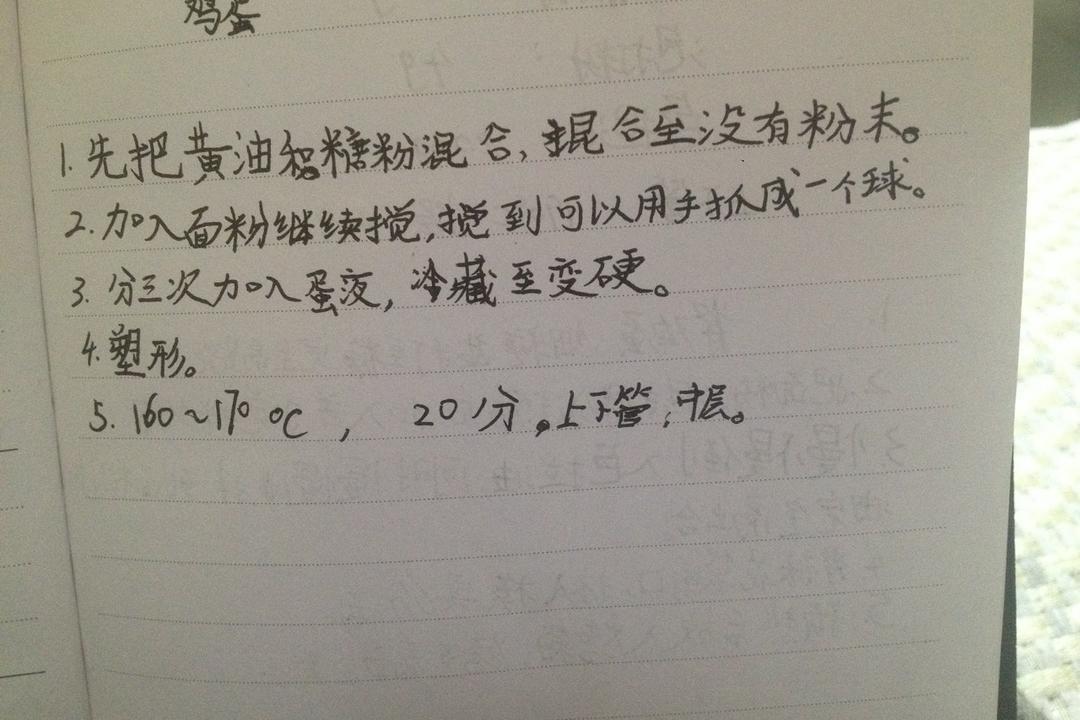 鸡蛋
1.先把黄油和糖粉混合,混合至没有粉末。
2.加入面粉继续搅,搅到可以用手抓成一个球。
3.分三次加入蛋液,冷藏至变硬。
4.塑形。
5.160~170℃, 20分。上下管,中层。